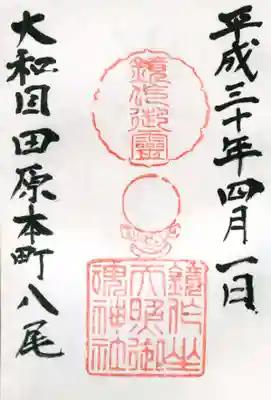 平成三十年四月一日
鏡作御靈
鏡作坐
天照御
魂神社
大和国田原本町八尾